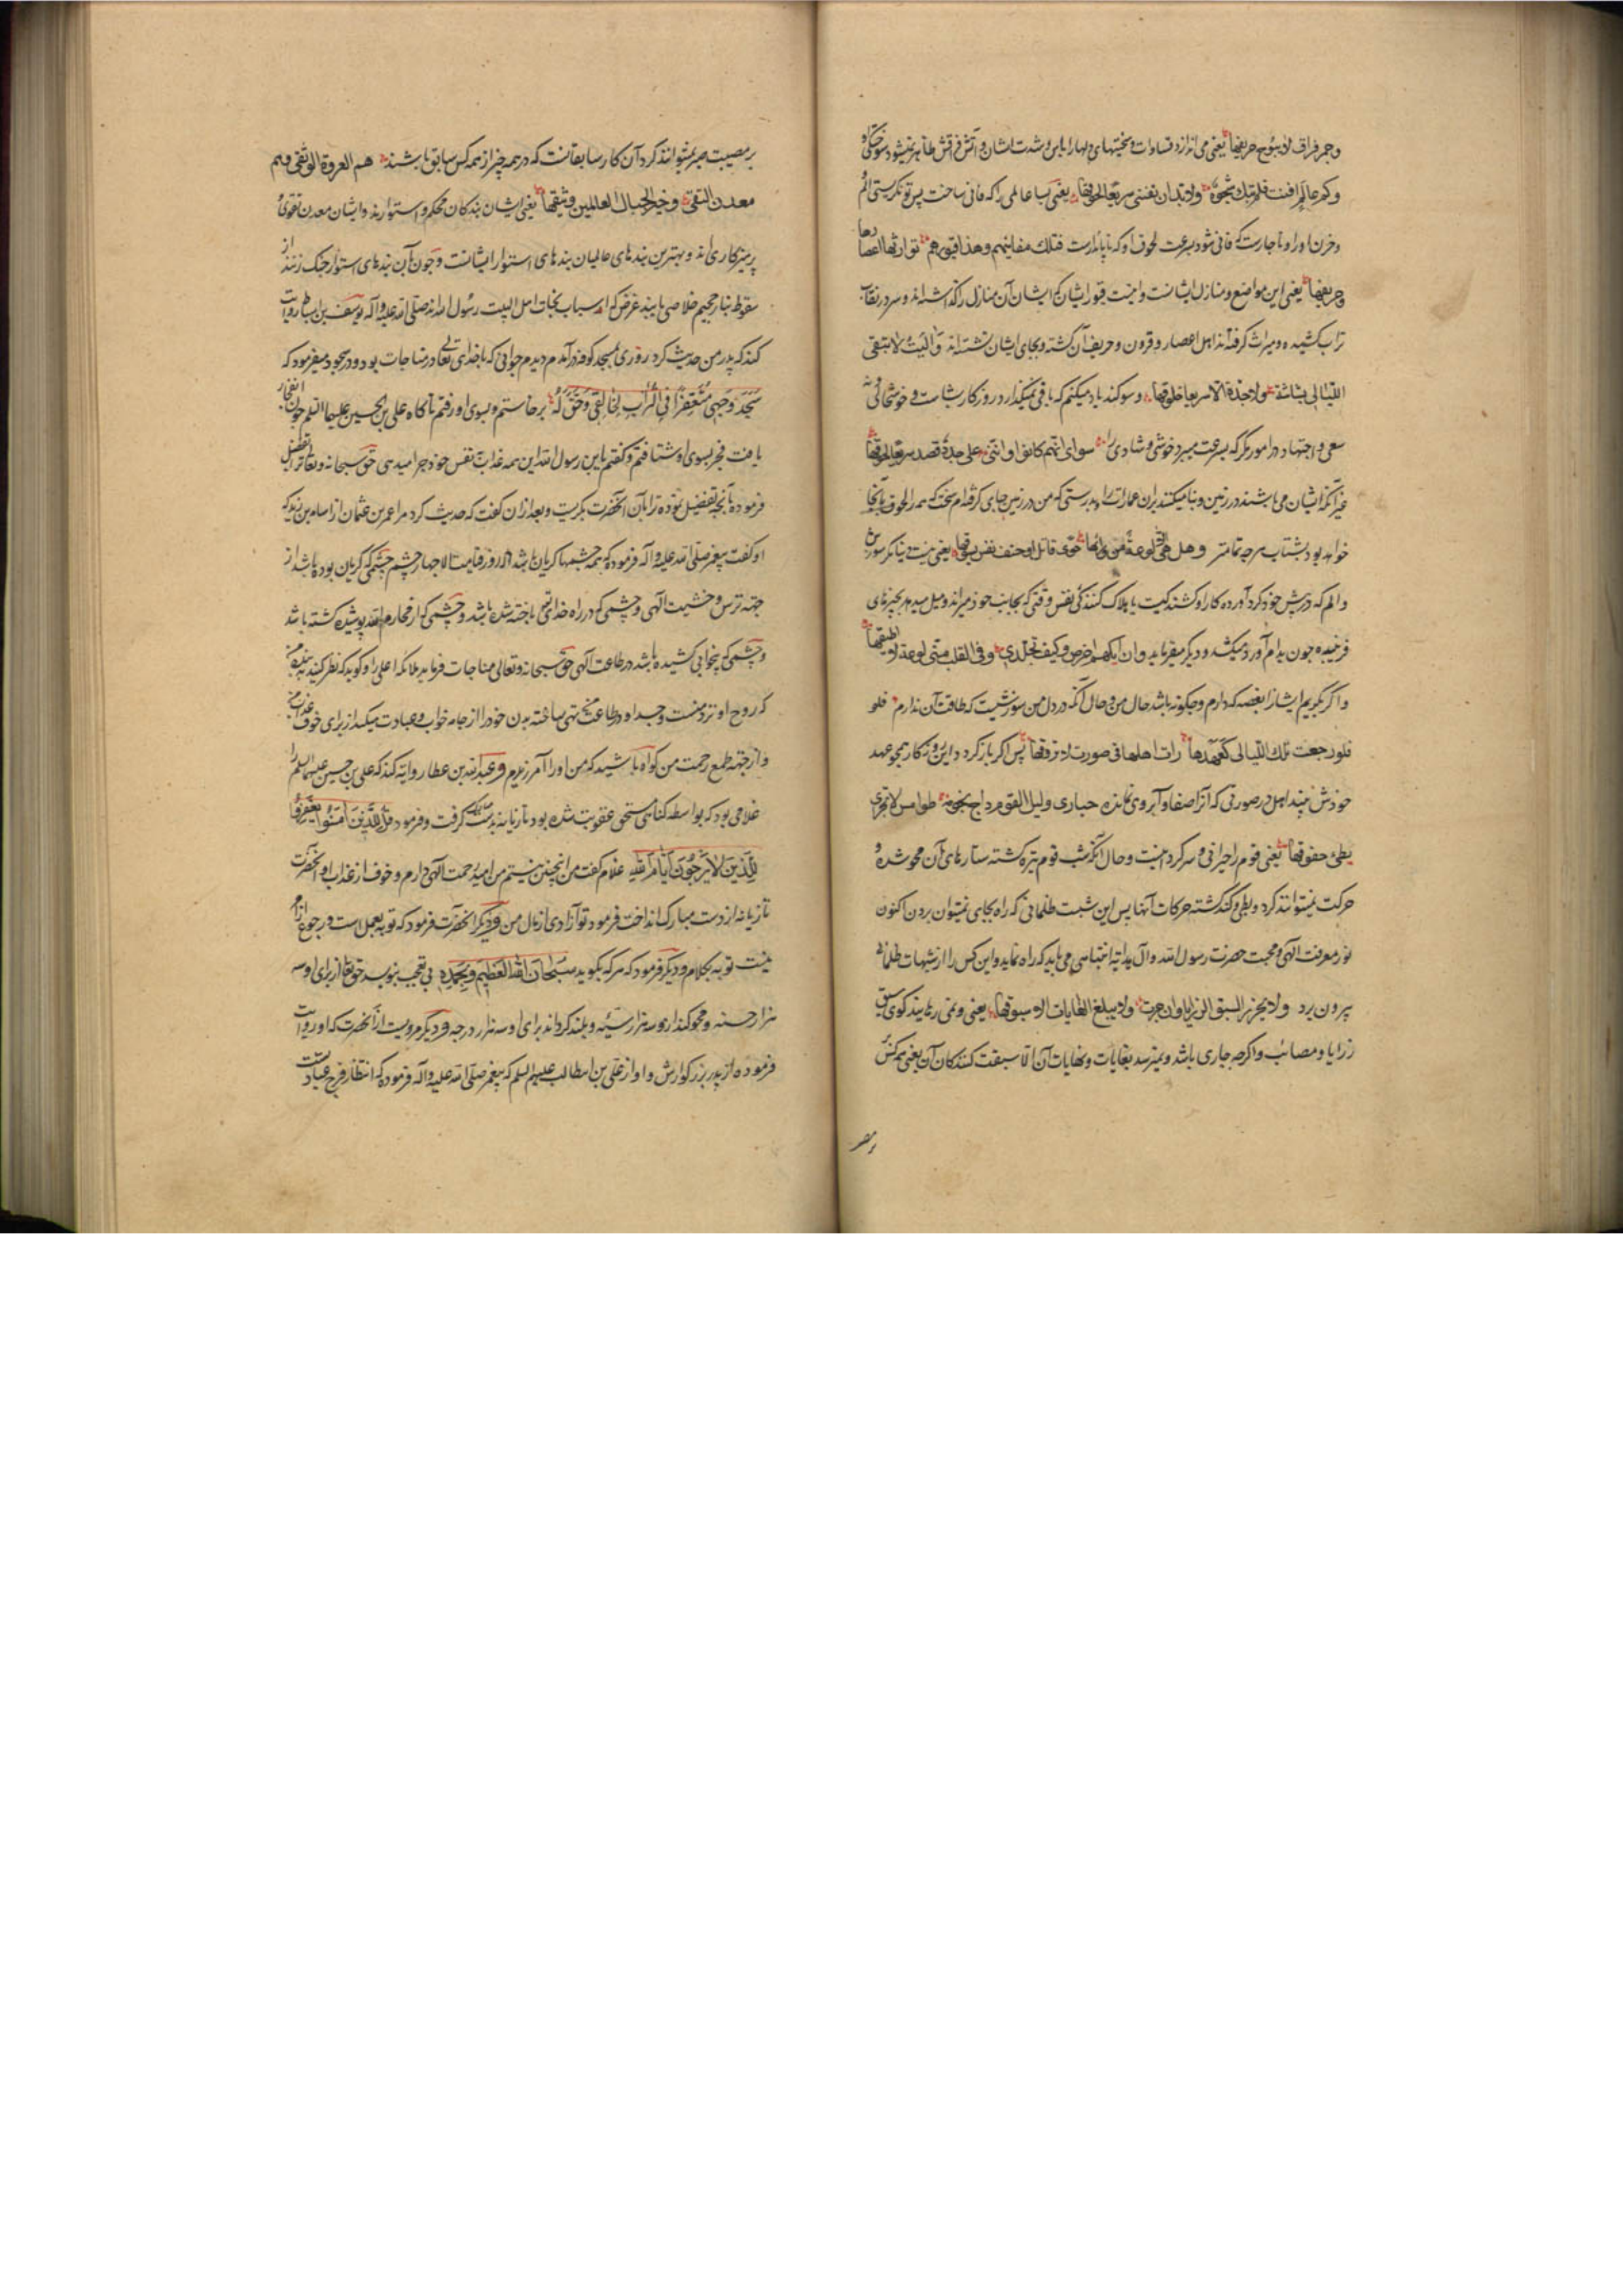 وجمر فراق لا یبوح حریقها یعنی می اندازد قساوات و سختیهای دلها را یاس و شدت ایشان و آتش فراقش ظاهر نمیشود سوختگی او
وکم عالم افنت فلم تبک شجوه ولا بد ان تفنی سریعا لحوقها یعنی بسا عالمی را که فانی ساخت پس تو نگریستی الم
وحزن او را و ناچارست که فانی شود بسرعت لحوق او که ناپایدارست فتلک مغانیهم وهذا قبورهم توارثها اعصارها
وحریقها یعنی این مواضع و منازل ایشانست و اینست قبور ایشان که ایشان آن منازل را گذاشته اند و سر در نقاب
تراب کشیده و میراث گرفته اند اهل اعصار و قرون و حریف آن گشته و بجای ایشان نشسته اند و آلیت لا تبقی
اللیالی بشاشة ولا جدة الا سریعا خلوقها و سوگند یاد میکنم که باقی نمیگذارد روزگار بشاشت و خوشحالی و نه
سعی و اجتهاد در امور مگر که بسرعت میبرد خوشی و شادی را سوای انهم کانوا واننی علی جدد قصد سریعا لحوقها
غیر آنکه ایشان می باشند در زمین و بنا میکنند بران عمارت را و بدرستی که من در زمین جای گرفته ام سخت که مرا لحوق بآنجا
خواهد بود بشتاب هر چه تمامتر وهل هی الا لوعة من ورائها جوی قاتل او حتف نفس یسوقها یعنی نیست دنیا مگر سوزش
و الم که در پیش خود گرد آورده کار او کشندگیست یا هلاک کنندگی نفس وقتی که بجانب خود میراند و میل میدهد بچیزهای
فریبنده چون بدام آورد میکشد و دیگر میفرماید وان ابکهم اجرض وکیف تجلدی وفی القلب منی لوعة لا اطیقها
و اگر بگریم ایشانرا بغصه که دارم و چگونه باشد حال من و حال آنکه در دل من سوزشیست که طاقت آن ندارم فلو
فلو رجعت تلک اللیالی کعهدها رات اهلها فی صورت لا تروقها پس اگر باز گردد این روزگار همچو عهد
خودش بیند اهل در صورتی که آنرا صفا و آبروی نمانده حیاری ولیل القوم داج نجومه طوامس لا تجری
بطئ خفوقها یعنی قوم را حیرانی و سرگردانیست و حال آنکه شب قوم تیره گشته ستارهای آن محو شده و
حرکت نمیتوانند کرد و بطی و کند گشته حرکات آنها پس این شبست ظلمانی که راه بجای نمیتوان بردن اکنون
نور معرفت الهی و محبت حضرت رسول الله و آل بدایة اختباسی می باید که راه نماید و این کس را از شبهات ظلمانی
بیرون برد ولا یحرز السبق الرزایا وان جرت ولا یبلغ الغایات الا سبوقها یعنی و نمی رباید گوی سبق
رزایا و مصائب و اگرچه جاری باشد و نمیرسد بغایات و نهایات آن الا سبقت کنندگان آن یعنی همه کس
بر مصیبت صبر نمیتوانند کرد آن کار سابقانست که در همه چیز از همه کس سابق باشند هم العروة الوثقی وهم
معدن التقی وخیر الحبال العالمین وثیقها یعنی ایشان بندگان محکم و استوارند و ایشان معدن تقوی و
پرهیزکاری اند و بهترین بندهای عالمیان بندهای استوار ایشانست و چون بآن بندهای استوار چنگ زنند از
سقوط بنار جحیم خلاصی یابند غرض که اسباب نجات اهل البیت رسول الله اند صلی الله علیه وآله یوسف بن اسباط روایت
کند که پدر من حدیث کرد روزی بمسجد کوفه در آمدم دیدم جوانی که با خدای تعالی در مناجات بود و در سجود میفرمود که
سجد وجهی متعفرا فی التراب لخالقی وحق له برخاستم و بسوی او رفتم ناگاه علی بن الحسین علیهما السلم چون انفجار
یافت فجر بسوی او شتافتم و گفتم یا بن رسول الله این همه عذاب نفس خود چرا میدهی حق سبحانه و تعالی ترا تفضیل
فرموده بآنچه تفضیل نموده ترا بآن آنحضرت بگریست و بعد ازان گفت که حدیث کرد مرا عمر بن عثمان از اسامه بن زید که
او گفت پیغمبر صلی الله علیه وآله فرمود که همه چشمها گریان باشد الا روز قیامت الا چهار چشم چشمی که گریان بوده باشد از
جهته ترس و خشیت الهی و چشمی که در راه خدای تعالی باخته شده باشد و چشمی که از محارم الله پوشیده گشته باشد
و چشمی که بیخوابی کشیده باشد در طاعت الهی حق سبحانه و تعالی مباهات فرماید ملائکه اعلی را و گوید که نظر کنید به بنده من
که روح او نزد منست و جسد او در طاعت من تهی ساخته بدن خود را از جامه خواب و عبادت میکند از برای خوف عذاب من
و از جهته طمع رحمت من گواه باشید که من او را آمرزیدم و عبد الله بن عطا روایه کند که علی بن حسین علیهما السلم را
غلامی بود که بواسطه گناهی مستحق عقوبت شده بود تازیانه بدست مبارک گرفت و فرمود قل للذین آمنوا یغفروا
للذین لا یرجون ایام الله غلام گفت من اینچنین نیستم من امید برحمت الهی دارم و خوف از عذاب او آنحضرت
تازیانه از دست مبارک انداخت فرمود تو آزادی از مال من و دیگر آنحضرت فرمود که توبه بعمل است و رجوع از امر
نیست توبه بکلام و دیگر فرمود که هر که بگوید سبحان الله العظیم وبحمده بی تعجب بنویسد حق تعالی از برای او سه
هزار حسنه و محو گنداز و سه هزار سیئه و بلند گرداند برای او سه هزار درجه و دیگر مرویست از آنحضرت که او روایت
فرموده از پدر بزرگوارش و او از علی بن ابیطالب علیهم السلم که پیغمبر صلی الله علیه وآله فرموده که انتظار فرج عبادتست